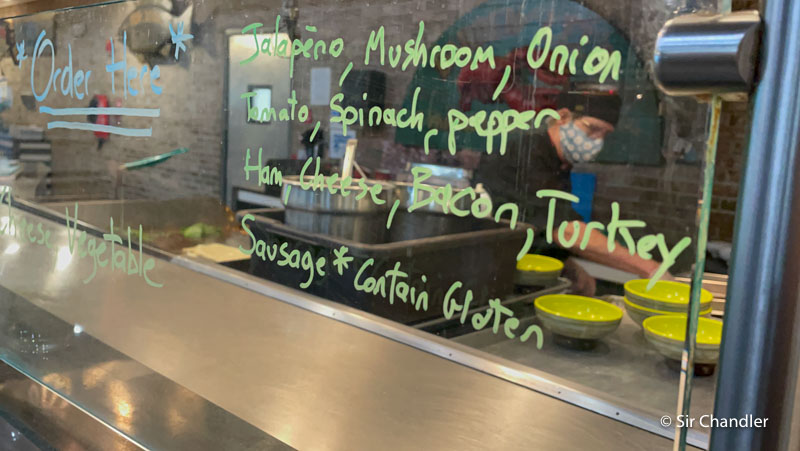 *Order Here*
Jalapeño, Mushroom, Onion
Tomato, Spinach, pepper
Ham, Cheese, Bacon, Turkey
Sausage * Contain Gloten
Cheese Vegetable
© Sir Chandler